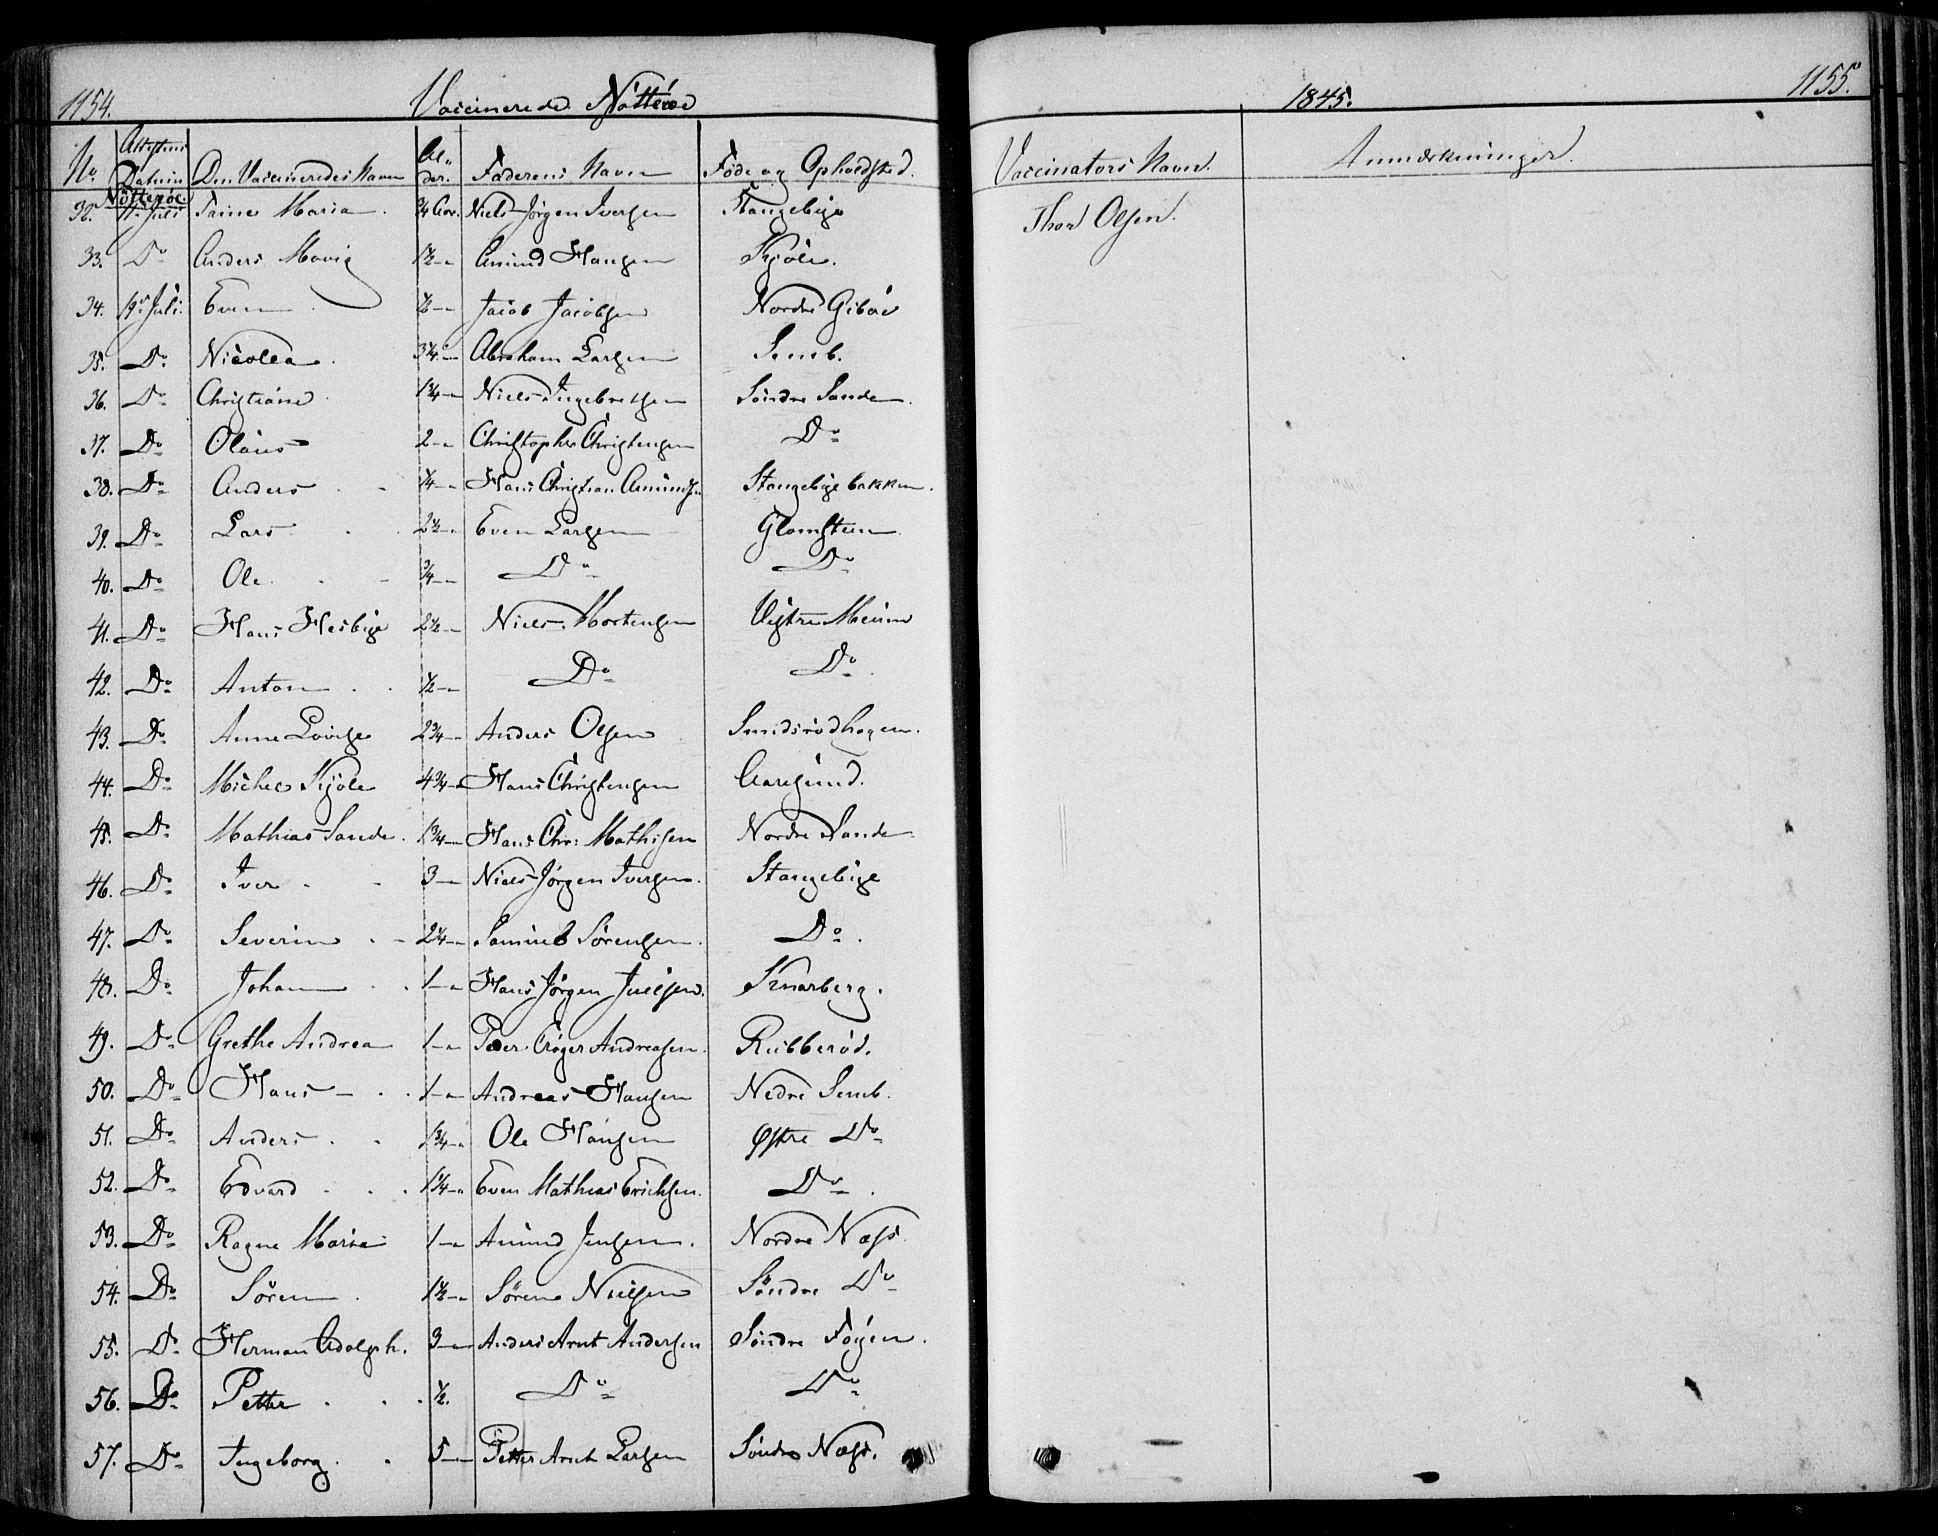 1154. Vaccinerede Nötteröe 1845. 1155.
No. Attestens Datum Den Vaccineredes Navn Alder. Faderens Navn Föde og Opholdsted. Vaccinators Navn. Anmærkninger.
Nötteröe
32. Juli Maria. 3/4 Aar. Niels Jörgen Iversen Stangebÿe Thor Olsen.
33. Do Anders Movig 1½ - " Amund Hansen Kjöle.
34. 19de Juli. Even ½ - " Jacob Jacobsen Nordre Giböe
35. Do Nicolea. 3¼ - " Abraham Larsen Semb.
36. Do Christiane. 1¾ - " Niels Ingebretsen Söndre Sande.
37. Do Olaus 2 - " Christopher Christensen Do
38. Do Anders - ¼ - " Hans Christian Amundsen Stangebÿe bakken.
39. Do Lars 2½ - " Even Larsen Glomsteen.
40. Do Ole. - ¾ - " Do Do
41. Do Hans Hesbÿe 2½ - " Niels Mortensen Vestre Meum
42. Do Anton . . ½ - " Do Do.
43. Do Anne Lovise 2¾ - " Anders Olsen Smidsrödhagen.
44. Do Michel Kjöle 4¾ - " Hans Christensen Aaresund.
45. Do Mathias Sande. 1¾ - " Hans Chr: Mathisen Nordre Sande
46. Do Iver - - 3 - " Niels Jörgen Iversen. Stangebÿe
47. Do Severin . - 2¼ - " Samuel Sörensen. Do.
48. Do Johan . . 1 - " Hans Jörgen Juelsen. Knarberg.
49. Do Grethe Andrea 1 - " Peder Cröger Andreasen. Rubberöd.
50. Do Hans - . . 1 - " Andreas Hansen Nedre Semb.
51. Do Anders . . 1¾ - " Ole Hansen Östre Do
52. Do Edvard . . 1¼ - " Even Mathias Erichsen. Do.
53. Do Ragne Maria 1 - " Amund Jensen. Nordre Næss.
54. Do Sören . 1½ - " Sören Nielsen Söndre Do
55. Do Herman Adolph. 3 - " Anders Arnt Andersen Söndre Föyen.
56. Do Petter . . . ½. Do Do.
57. Do Ingeborg. . 5 - " Petter Arnt Larsen Söndre Næss.